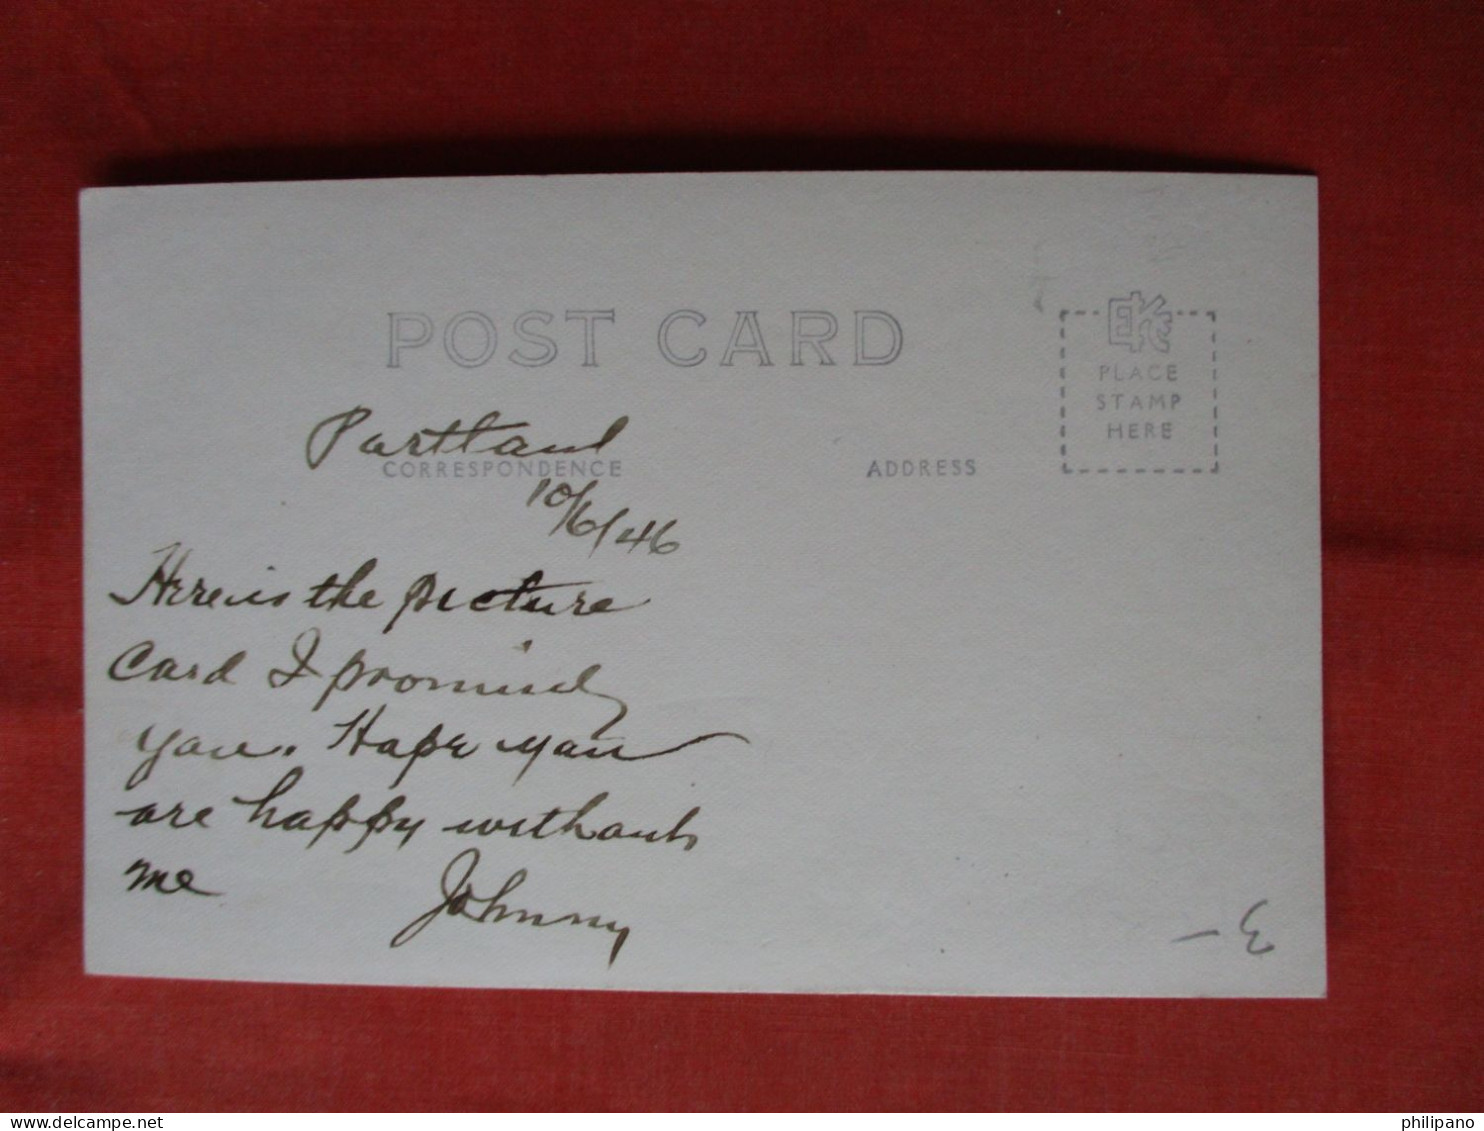 POST CARD
EKC
PLACE
STAMP
HERE
Portland
CORRESPONDENCE
ADDRESS
10/6/46
Here is the picture
Card I promised
you. Hope you
are happy without
me Johnny
philipano